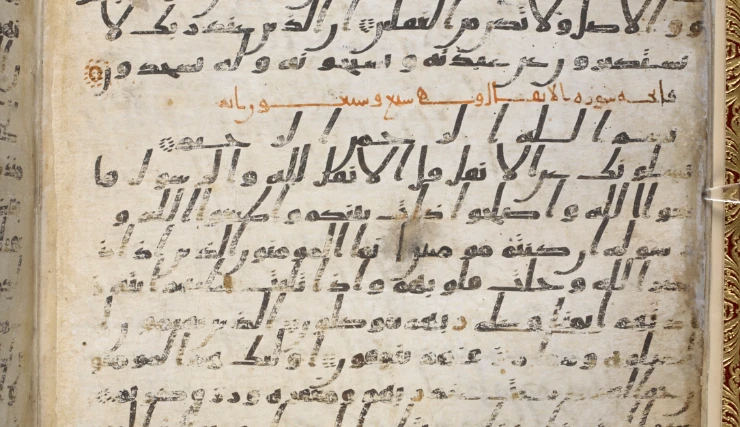 و والاصل ولا تكن من الغفلين ان الذين عند ربك لا
يستكبرون عن عبدته و يسبحونه و له يسجدون
فاتحه سوره الانفال وهي سبع و سبعون ايه
بسم الله الرحمن الرحيم
يسلونك عن الانفل قل الانفل لله والرسول فا
تقوا الله و اصلحوا ذات بينكم و اطيعوا الله و
رسوله ان كنتم مومنين انما المومنون الذين اذا ذ
كر الله و جلت قلوبهم و اذا تليت عليهم ايته ز
ادتهم ايمنا و على ربهم يتوكلون الذين يقيمون ا
لصلوه و مما رزقنهم ينفقون اوليك هم المومنو
ن حقا لهم درجت عند ربهم و مغفره و رزق كريم